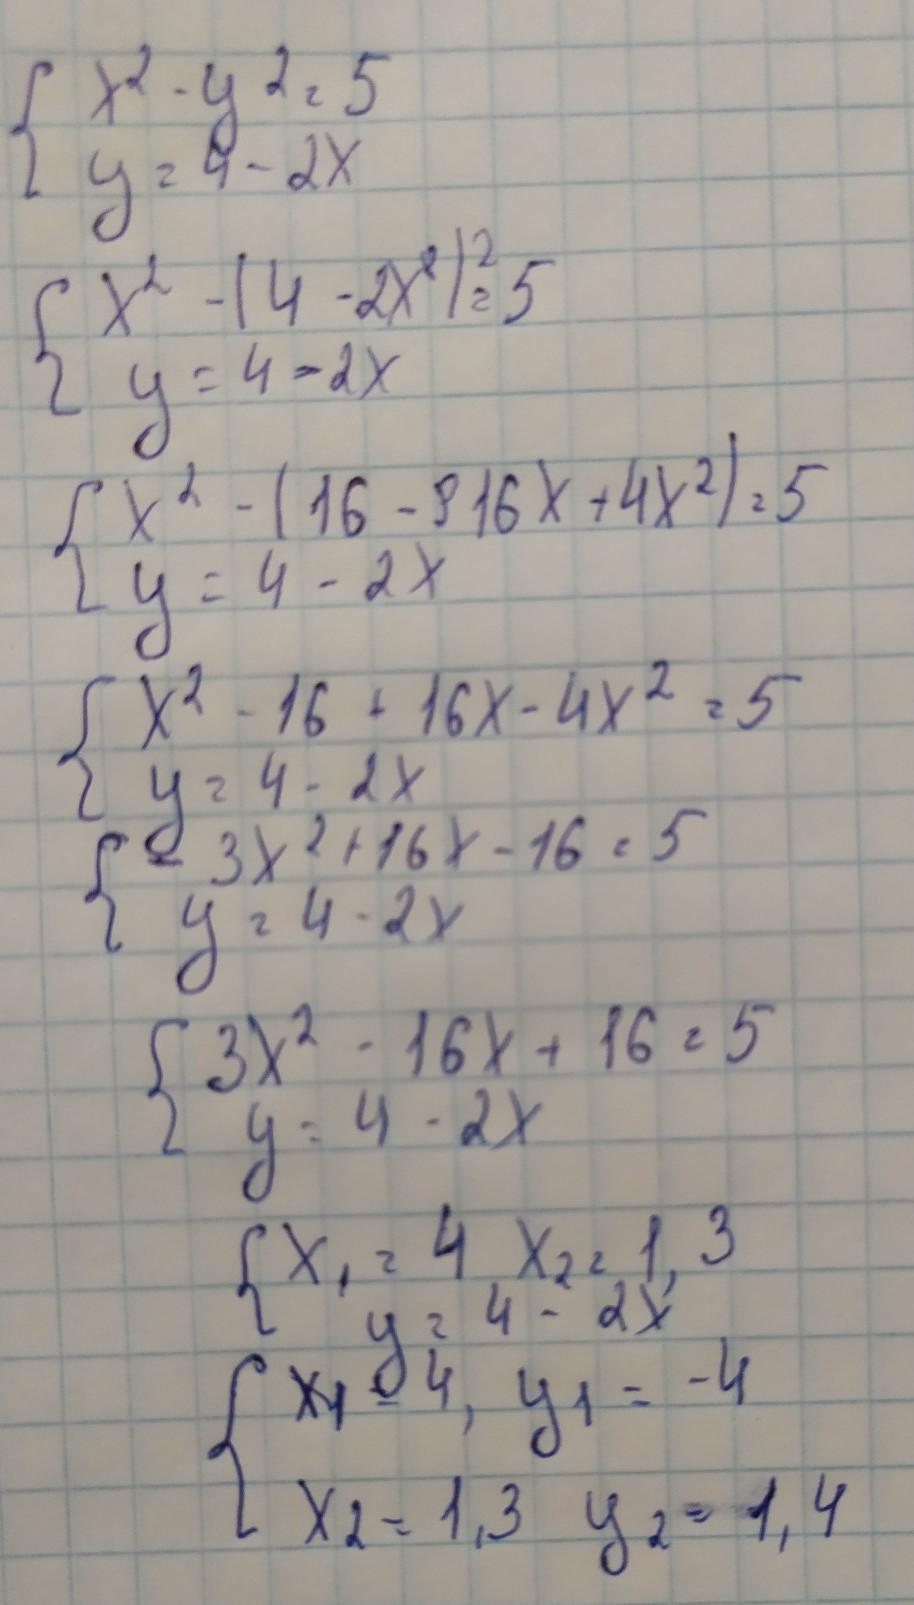 { x² - y² = 5
y = 4 - 2x
{ x² - (4 - 2x)² = 5
y = 4 - 2x
{ x² - (16 - 16x + 4x²) = 5
y = 4 - 2x
{ x² - 16 + 16x - 4x² = 5
y = 4 - 2x
{ - 3x² + 16x - 16 = 5
y = 4 - 2x
{ 3x² - 16x + 16 = 5
y = 4 - 2x
{ x₁ = 4 x₂ = 1,3
y = 4 - 2x
{ x₁ = 4, y₁ = -4
x₂ = 1,3 y₂ = 1,4